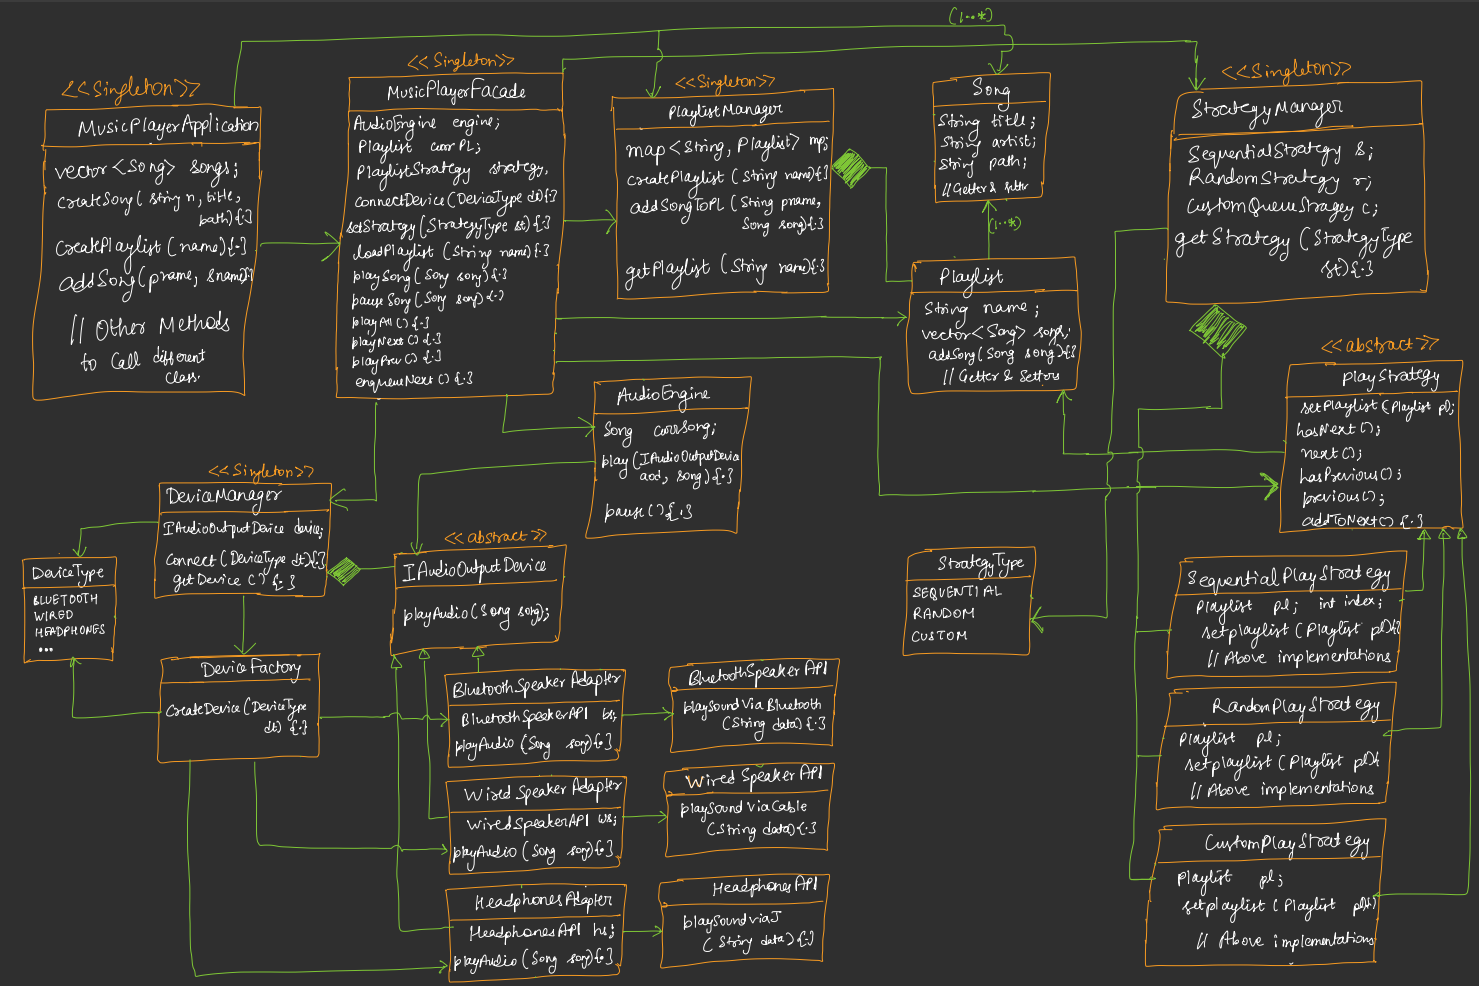 <<Singleton>>
MusicPlayerApplication
vector<Song> songs;
createSong(string n, title,
path){.}
createPlaylist(name){.}
addSong(pname, sname){}
// Other Methods
to Call different
class.
<<Singleton>>
MusicPlayerFacade
AudioEngine engine;
Playlist currPL;
PlaylistStrategy strategy,
connectDevice(DeviceType dt){.}
setStrategy(StrategyType st){.}
loadPlaylist (String name){.}
playSong(Song song){.}
pauseSong(Song song){.}
playAll(){.}
playNext(){.}
playPrev(){.}
enqueueNext(){.}
<<Singleton>>
PlaylistManager
map<String, Playlist> mp;
createPlaylist (String name){}
addSongToPL (String pname,
Song song){.}
getPlaylist (String name){.}
(1..*)
Song
String title;
String artist;
String path;
//Getter & setter
(1..*)
<<Singleton>>
StrategyManager
SequentialStrategy s;
RandomStrategy r;
CustomQueueStragey c;
getStrategy (StrategyType
st){.}
Playlist
String name;
vector<Song> songs;
addSong(Song song){}
// Getter & Settors
<<abstract>>
PlayStrategy
setPlaylist(Playlist pl);
hasNext();
next();
hasPrevious();
previous();
addToNext(){.}
AudioEngine
Song currSong;
play(IAudioOutputDevice
aod, song){.}
pause(){.}
<<Singleton>>
DeviceManager
IAudioOutputDevice device;
connect(DeviceType dt){}
getDevice(){.}
DeviceType
BLUETOOTH
WIRED
HEADPHONES
...
<<abstract>>
IAudioOutputDevice
playAudio(Song song);
StrategyType
SEQUENTIAL
RANDOM
CUSTOM
DeviceFactory
createDevice(DeviceType
dt){.}
BluetoothSpeaker Adapter
BluetoothSpeakerAPI bs;
playAudio(Song song){.}
BluetoothSpeaker API
playSoundViaBluetooth
(String data){.}
Wired Speaker Adapter
WiredSpeakerAPI ws;
playAudio(Song song){.}
Wired Speaker API
playSound ViaCable
(String data){.}
HeadphonesAdapter
HeadphonesAPI hs;
playAudio(Song song){.}
HeadphonesAPI
playSoundviaJ
(String data){.}
SequentialPlayStrategy
Playlist pl; int index;
setplaylist(Playlist pl){}
// Above implementations
RandomPlayStrategy
Playlist pl;
setplaylist(Playlist pl){}
// Above implementations
CustomPlayStrategy
Playlist pl;
setplaylist(Playlist pl){}
// Above implementations